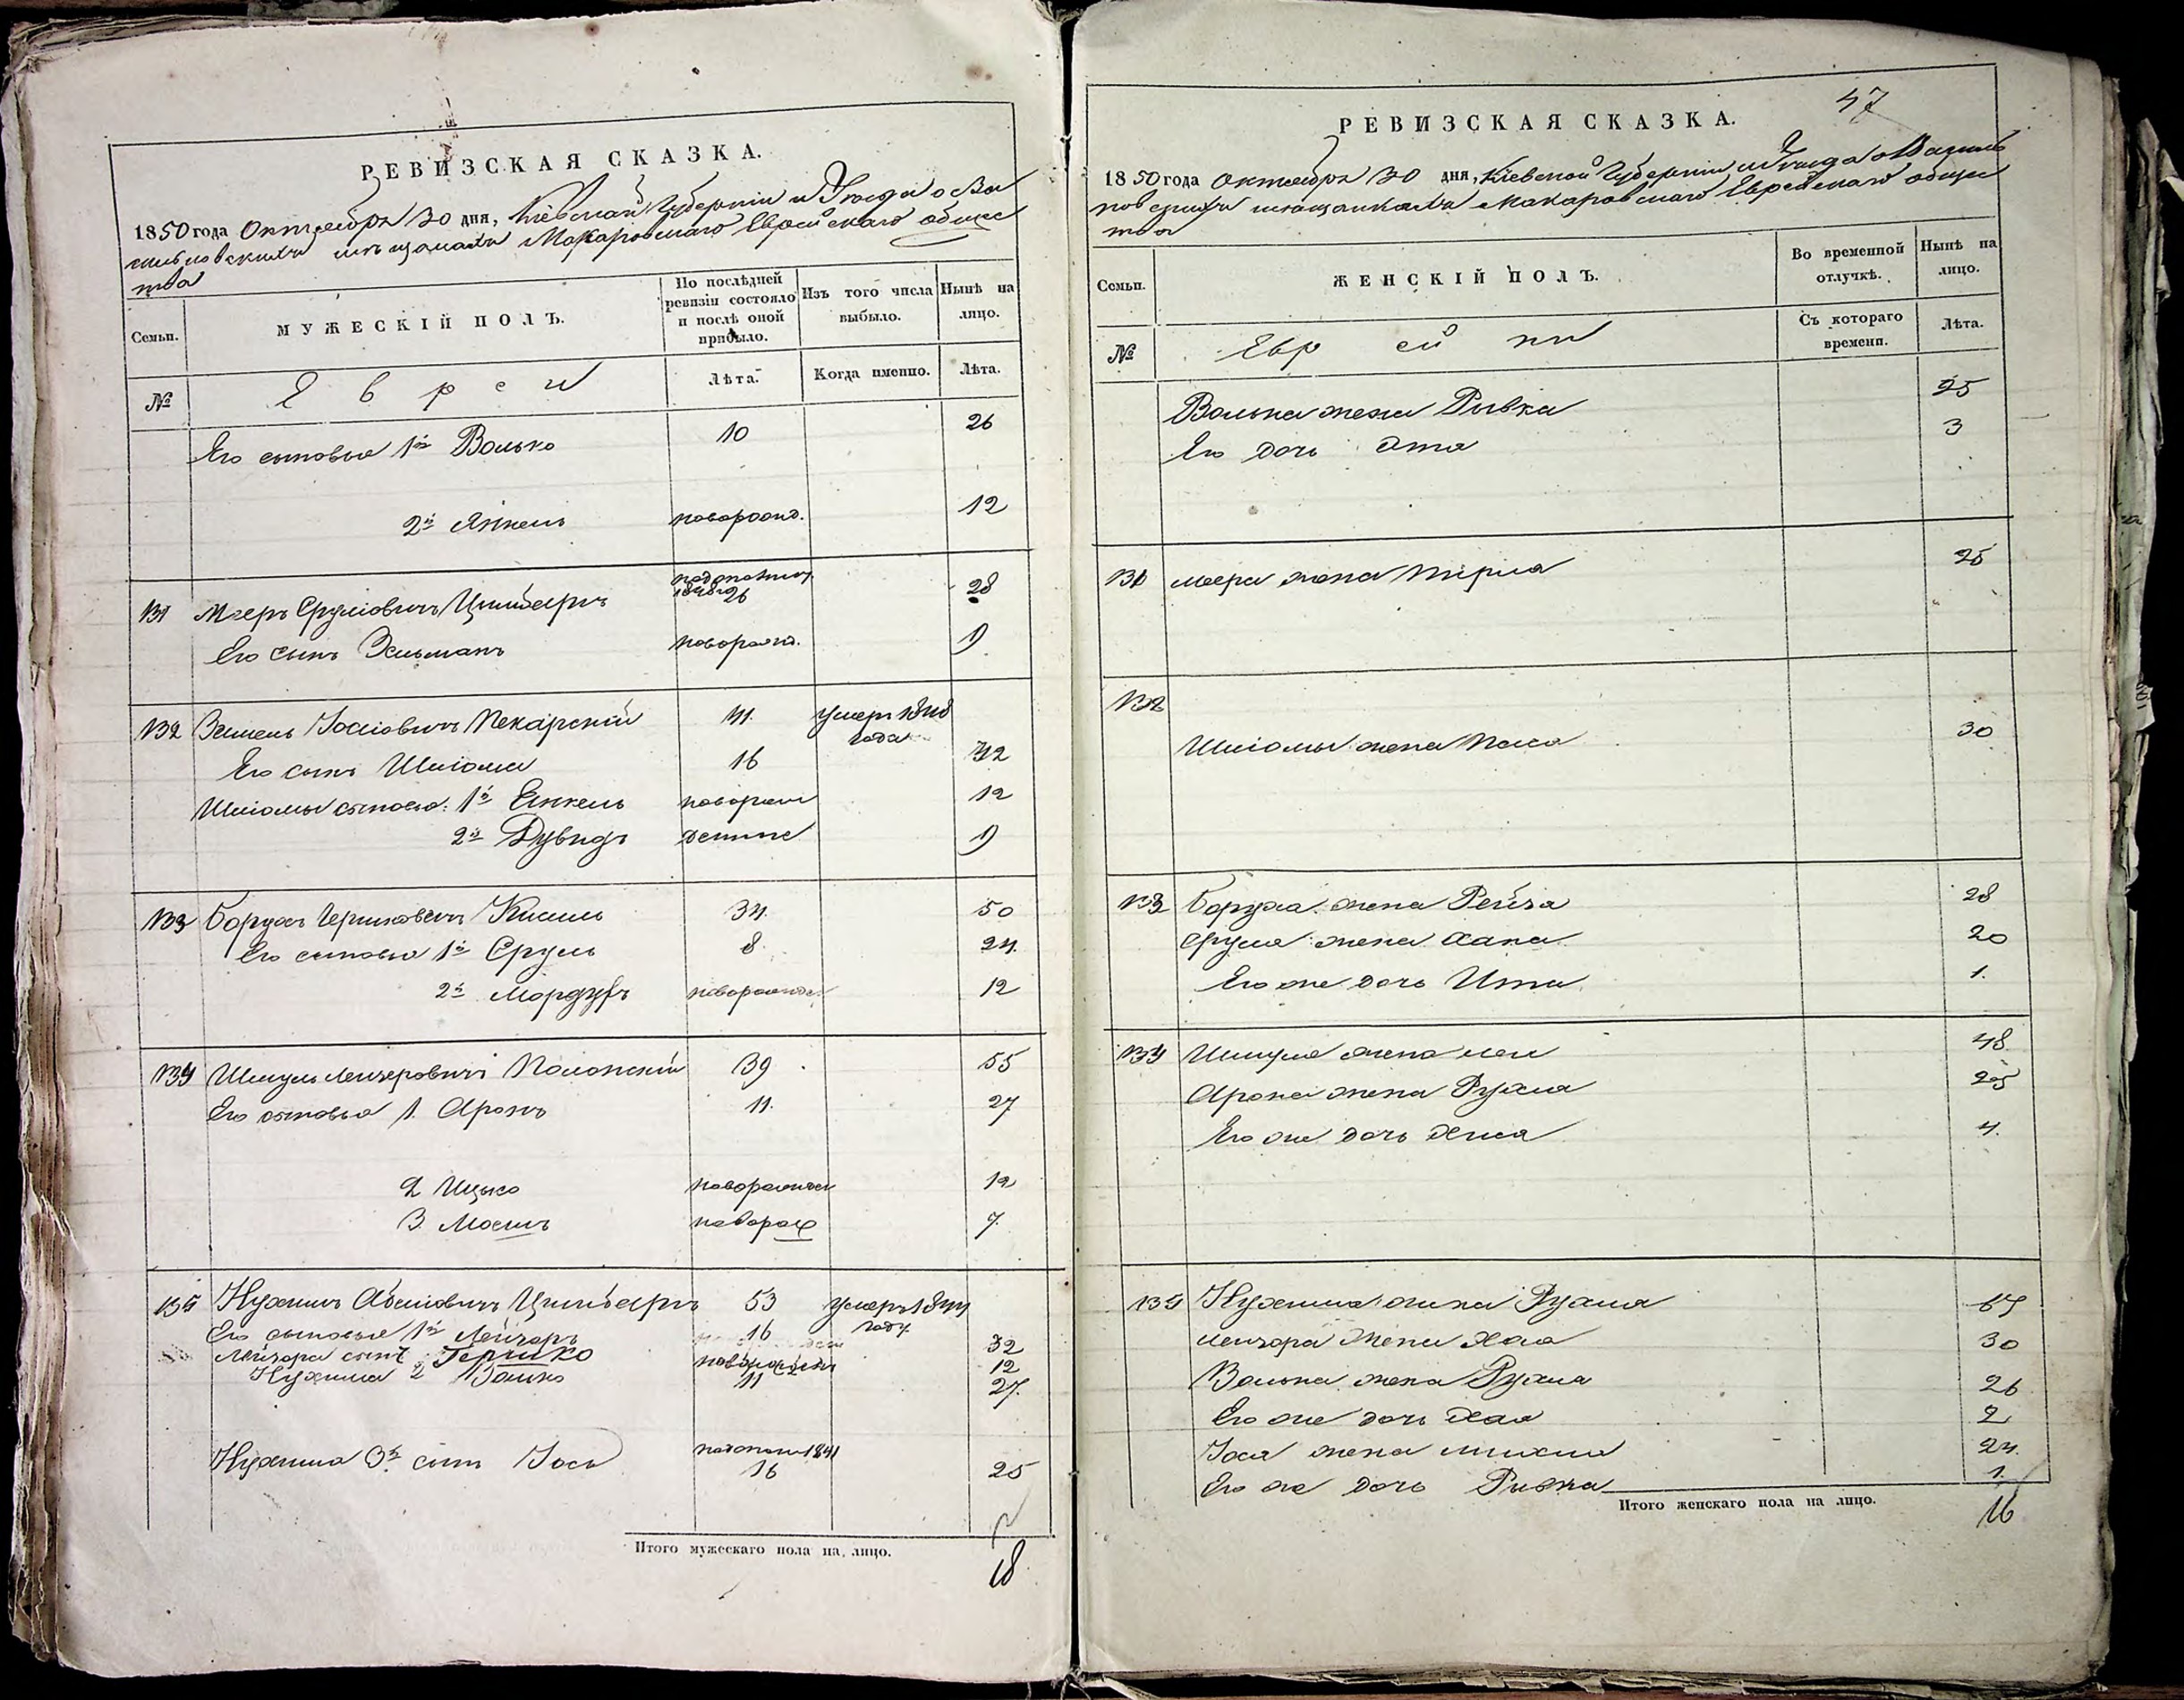 РЕВИЗСКАЯ СКАЗКА.
1850 года Октября 30 дня, Кіевской Губерніи и Уѣзда о Ва
сильковскихъ мѣщанахъ Макаровскаго Еврейскаго общес
тва
Семьи.
МУЖЕСКІЙ ПОЛЪ.
По послѣдней ревизіи состояло и послѣ оной прибыло.
Изъ того числа выбыло.
Нынѣ на лицо.
№
Евреи
Лѣта.
Когда именно.
Лѣта.
Его сыновья 1й Волько 10 26
2й Янкель новорожд. 12
131 Мееръ Сруліовичъ Цимбергъ 1848 26 28
Его сынъ Зельманъ новорожд. 1
132 Зельманъ Іосіовичъ Пекарскій 41. умеръ 1848 года
Его сынъ Шліома 16 32
Шліомы сыновья: 1й Енкель новорож 12
2й Дувидъ 1
133 Борухъ Гершковичъ Кисиль 34. 50
Его сыновья 1й Сруль 8. 24.
2й Мордухъ новорожден 12
134 Шмуль Лейзеровичъ Полонскій 39 55
Его сыновья 1. Аронъ 11. 27
2 Ицько новорожден 12
3. Мошко новорож 7.
135 Нухимъ Абеліовичъ Цимбергъ 53 умеръ 1844 году
Его сыновья 1й Лейзоръ 16 32
Лейзора сынъ Гершко новорожден 12
Нухима 2 Волько 11 27.
Нухима 3й сынъ Іось 1841 16 25
Итого мужескаго пола на лицо.
18
47
РЕВИЗСКАЯ СКАЗКА.
1850 года Октября 30 дня, Кіевской Губерніи и Уѣзда о Василь
ковскихъ мѣщанкахъ Макаровскаго Еврейскаго общес
тва
Семьи.
ЖЕНСКІЙ ПОЛЪ.
Во временной отлучкѣ.
Нынѣ на лицо.
№
Еврейки
Съ котораго времени.
Лѣта.
Волька жена Рывка 25
Его дочь Эта 3
131 Меера жена Пѣрла 25
132
Шліомы жена Песа 30
133 Боруха жена Рейза 28
Сруля жена Хана 20
Его же дочь Ита 1.
134 Шмуля жена Леи 48.
Арона жена Рухля 25
Его же дочь 4.
135 Нухима жена Рухля 67
Лейзора жена Хая 30
Волька жена Рухля 26
Его же дочь Хая 2
Іося жена 24.
Его же дочь Рывка 1.
Итого женскаго пола на лицо.
16